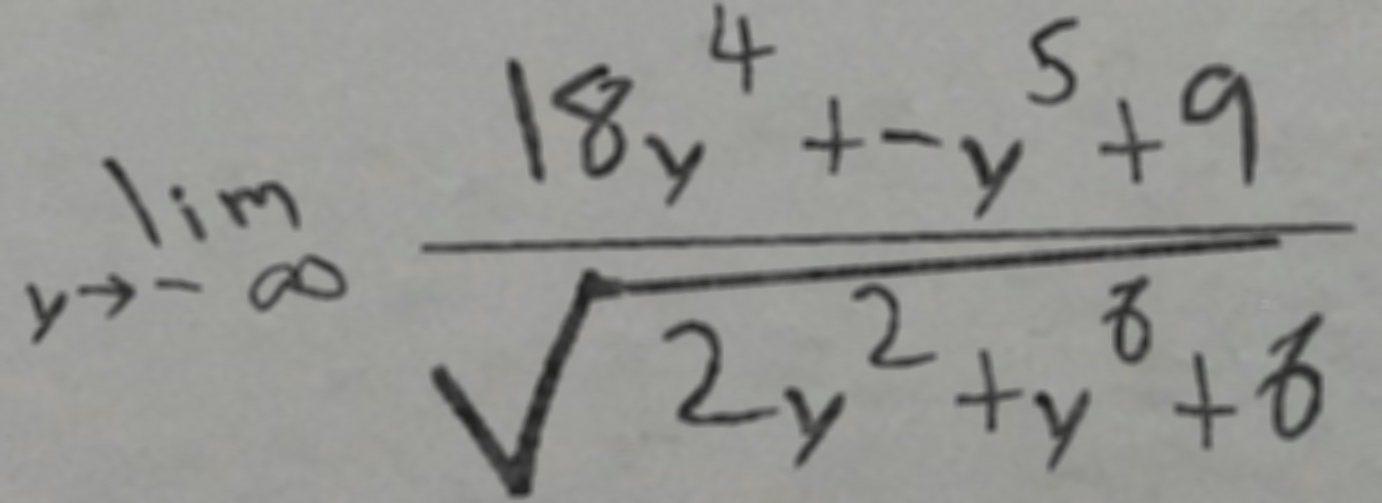 \lim_{y \to -\infty} \frac{18y^4 + -y^5 + 9}{\sqrt{2y^2 + y^8 + 8}}